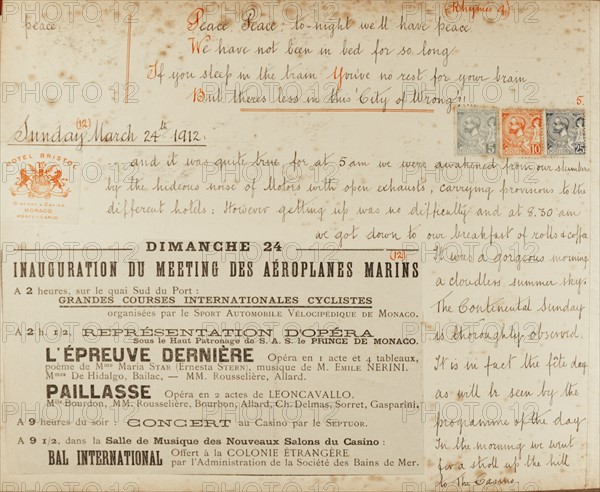 (Rhymes 4)
peace
Peace, Peace; to-night we'll have peace
We have not been in bed for so long
If you sleep in the train You've no rest for your brain
But theres less in this 'City of Wrong'!
5.
(12)
Sunday March 24th 1912.
5
10
25
HOTEL BRISTOL
MONACO
MONTE-CARLO
...and it was quite true for at 5 am we were awakened from our slumbers
by the hideous noise of Motors with open exhausts, carrying provisions to the
different hotels: However getting up was no difficulty and at 8.30 am
we got down to our breakfast of rolls & coffee
DIMANCHE 24
(12)
INAUGURATION DU MEETING DES AÉROPLANES MARINS
A 2 heures, sur le quai Sud du Port :
GRANDES COURSES INTERNATIONALES CYCLISTES
organisées par le SPORT AUTOMOBILE VÉLOCIPÉDIQUE DE MONACO.
A 2 h. 1/2, REPRÉSENTATION D'OPÉRA
Sous le Haut Patronage de S. A. S. le PRINCE DE MONACO.
L'ÉPREUVE DERNIÈRE Opéra en 1 acte et 4 tableaux,
poème de Mme Maria STAR (Ernesta STERN), musique de M. ÉMILE NERINI.
Mmes De Hidalgo, Bailac, — MM. Rousselière, Allard.
PAILLASSE Opéra en 2 actes de LEONCAVALLO.
Mlle Bourdon, MM. Rousselière, Bourbon, Allard, Ch. Delmas, Sorret, Gasparini,
A 9 heures du soir : CONCERT au Casino par le SEPTUOR.
A 9 1/2, dans la Salle de Musique des Nouveaux Salons du Casino :
BAL INTERNATIONAL Offert à la COLONIE ÉTRANGÈRE
par l'Administration de la Société des Bains de Mer.
It was a gorgeous morning
a cloudless summer sky:
The Continental Sunday
is thoroughly observed.
It is in fact the fête day
as will be seen by the
programme of the day
In the morning we went
for a stroll up the hill
to the Casino